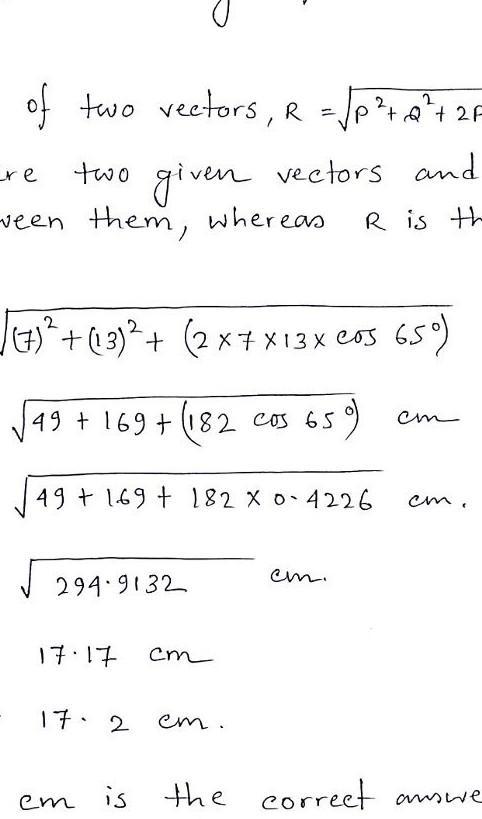 of two vectors, R = √P²+Q²+2P
two given vectors and
them, whereas R is
√(7)²+(13)²+ (2×7×13× cos 65°)
√49 + 169 + (182 cos 65°) cm
√49 + 169 + 182 × 0.4226 cm.
√294.9132 cm.
17.17 cm
17.2 cm.
cm is the correct answe